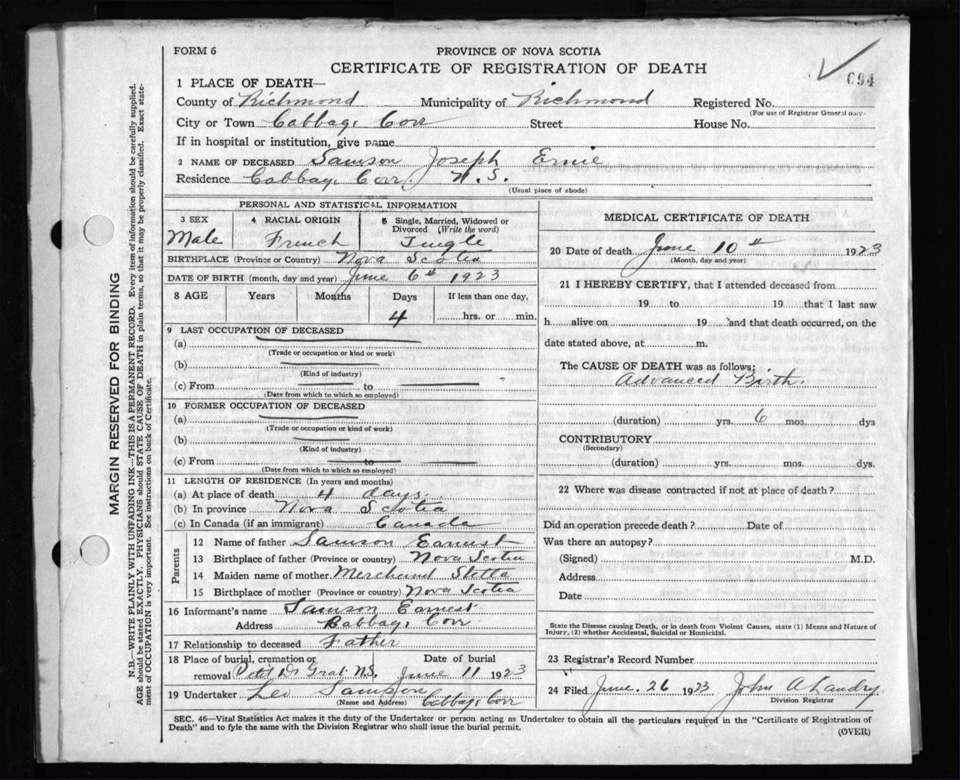 FORM 6
PROVINCE OF NOVA SCOTIA
CERTIFICATE OF REGISTRATION OF DEATH
694
1 PLACE OF DEATH—
County of Richmond Municipality of Richmond Registered No.
(For use of Registrar General only.
City or Town Cabbag, Cov Street House No.
If in hospital or institution, give name
2 NAME OF DECEASED Samson Joseph Ernie
Residence Cabbag, Cov, N.S.
(Usual place of abode)
PERSONAL AND STATISTICAL INFORMATION
3 SEX 4 RACIAL ORIGIN 5 Single, Married, Widowed or Divorced (Write the word)
Male French Single
BIRTHPLACE (Province or Country) Nova Scotia
DATE OF BIRTH (month, day and year) June 6th 1923
8 AGE Years Months Days If less than one day,
4 hrs. or min.
9 LAST OCCUPATION OF DECEASED
(a)
(Trade or occupation or kind or work)
(b)
(Kind of industry)
(c) From to
(Date from which to which so employed)
10 FORMER OCCUPATION OF DECEASED
(a)
(Trade or occupation or kind of work)
(b)
(Kind of industry)
(c) From to
(Date from which to which so employed)
11 LENGTH OF RESIDENCE (In years and months)
(a) At place of death 4 days
(b) In province Nova Scotia
(c) In Canada (if an immigrant) Canada
Parents
12 Name of father Samson Earnest
13 Birthplace of father (Province or country) Nova Scotia
14 Maiden name of mother Merchand Stetta
15 Birthplace of mother (Province or country) Nova Scotia
16 Informant's name Samson Earnest
Address Cabbag, Cov
17 Relationship to deceased Father
18 Place of burial, cremation or removal Petit De Grat N.S. Date of burial June 11 1923
19 Undertaker Leo Sampson Cabbag, Cov
(Name and Address)
MEDICAL CERTIFICATE OF DEATH
20 Date of death June 10th 1923
(Month, day and year)
21 I HEREBY CERTIFY, that I attended deceased from
19 to 19 that I last saw
h alive on 19 and that death occurred, on the
date stated above, at m.
The CAUSE OF DEATH was as follows;
Advanced Birth.
(duration) yrs. 6 mos. dys
CONTRIBUTORY
(Secondary)
(duration) yrs. mos. dys.
22 Where was disease contracted if not at place of death?
Did an operation precede death? Date of
Was there an autopsy?
(Signed) M.D.
Address
Date
State the Disease causing Death, or in death from Violent Causes, state (1) Means and Nature of
Injury, (2) whether Accidental, Suicidal or Homicidal.
23 Registrar's Record Number
24 Filed June 26 1923 John A Landry
Division Registrar
SEC. 46—Vital Statistics Act makes it the duty of the Undertaker or person acting as Undertaker to obtain all the particulars required in the "Certificate of Registration of
Death" and to fyle the same with the Division Registrar who shall issue the burial permit.
(OVER)
MARGIN RESERVED FOR BINDING
N.B.—WRITE PLAINLY WITH UNFADING INK—THIS IS A PERMANENT RECORD. Every item of information should be carefully supplied.
AGE should be stated EXACTLY. PHYSICIANS should STATE CAUSE OF DEATH in plain terms, so that it may be properly classified. Exact state-
ment of OCCUPATION is very important. See instructions on back of Certificate.